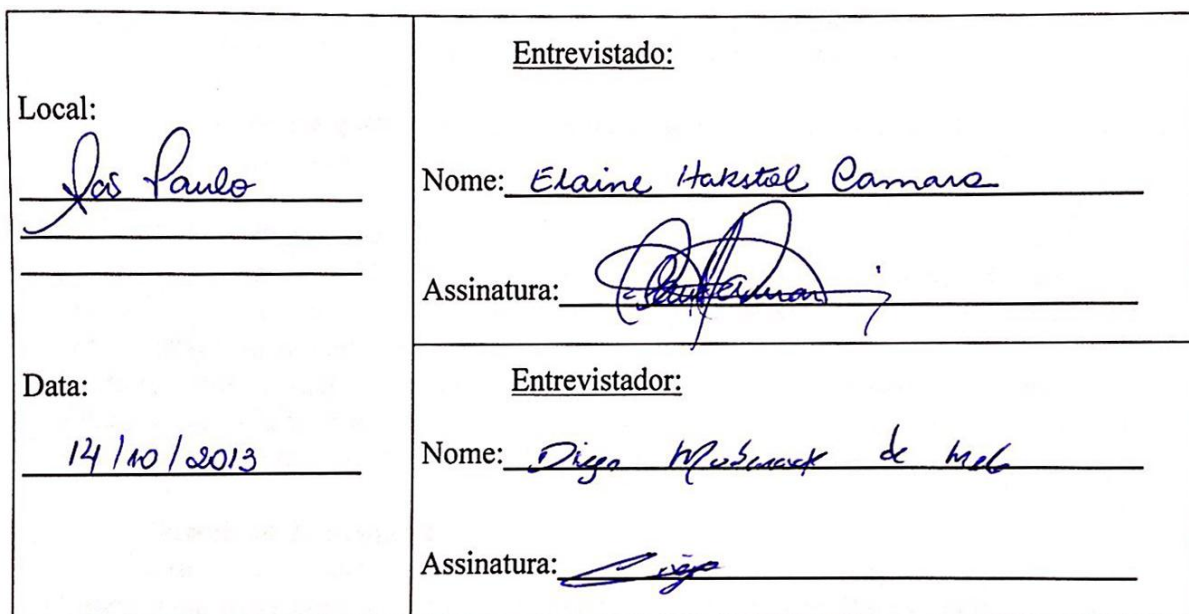 Local:
São Paulo
Data:
14/10/2013
Entrevistado:
Nome: Elaine Hakstol Camara
Assinatura:
Entrevistador:
Nome: Diego de Melo
Assinatura: Diego